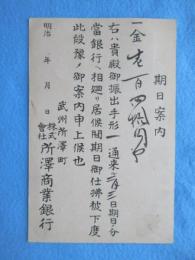 期日案内
一金壱百四拾円也
右ハ貴殿御振出手形一通来六月三日期日分
當銀行ヘ相廻リ居候間期日御仕拂被下度
此段豫メ御案内申上候也
武州所澤町
株式會社 所澤商業銀行
明治 年 月 日